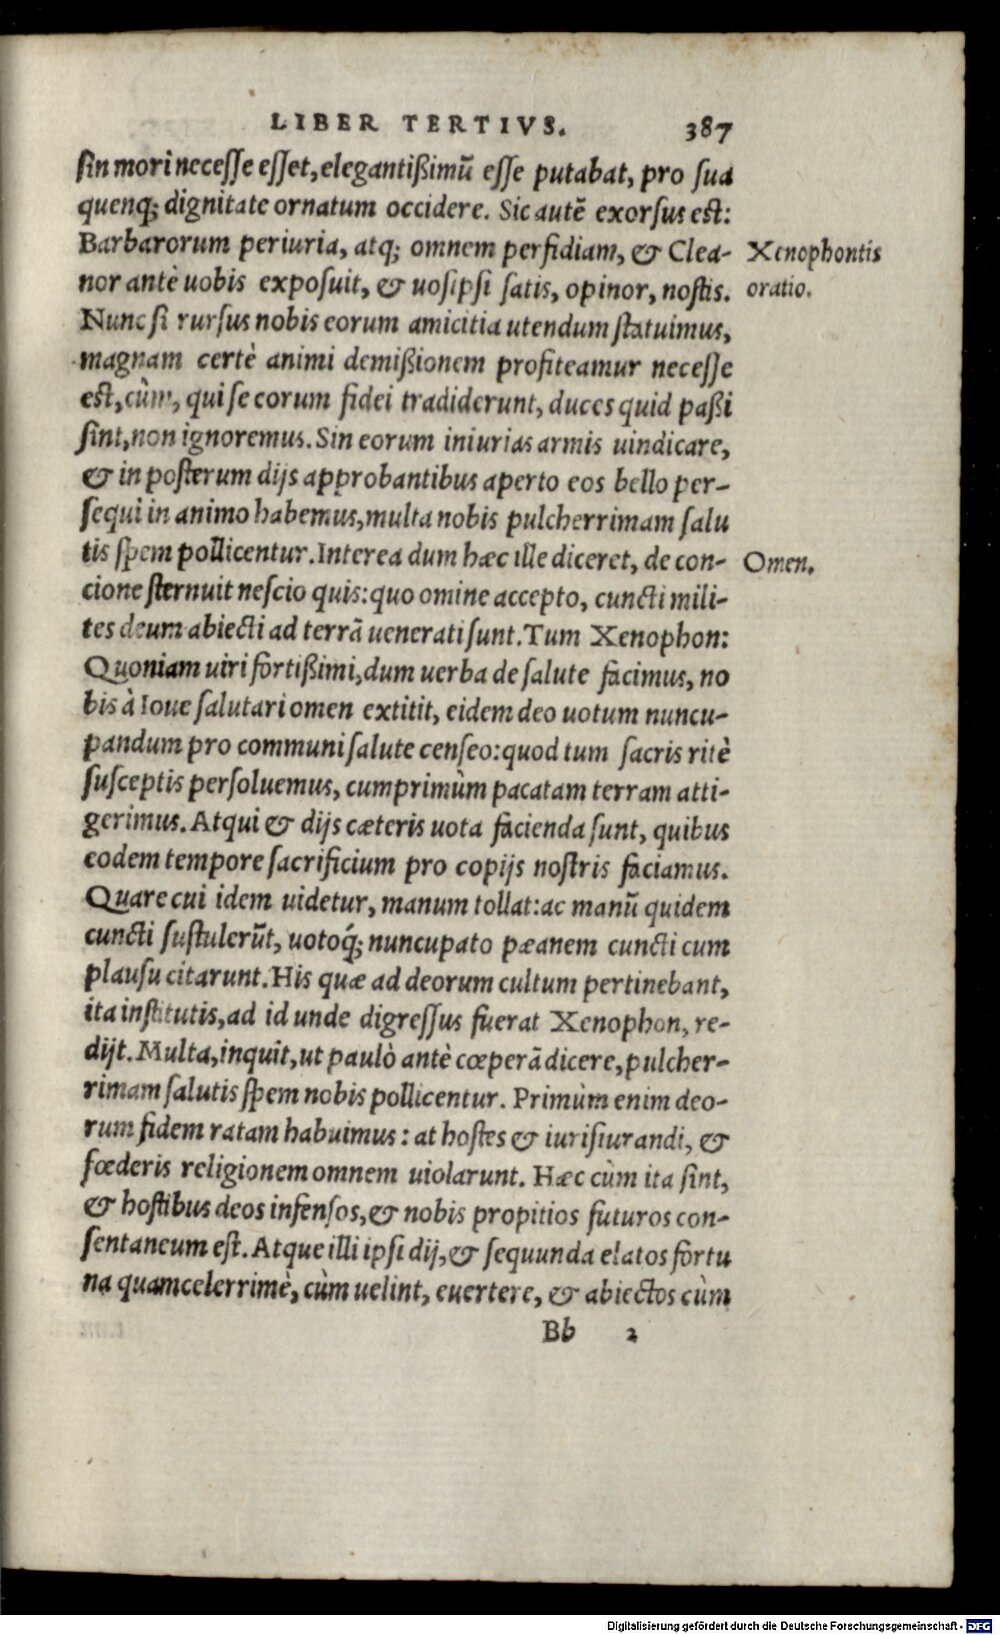 LIBER TERTIVS. 387
sin mori necesse esset, elegantißimũ esse putabat, pro sua
quenq; dignitate ornatum occidere. Sic autẽ exorsus est:
Barbarorum periuria, atq; omnem perfidiam, & Clea- Xenophontis
nor antè uobis exposuit, & uosipsi satis, opinor, nostis. oratio.
Nunc si rursus nobis eorum amicitia utendum statuimus,
magnam certè animi demißionem profiteamur necesse
est, cùm, qui se eorum fidei tradiderunt, duces quid paßi
sint, non ignoremus. Sin eorum iniurias armis uindicare,
& in posterum dijs approbantibus aperto eos bello per-
sequi in animo habemus, multa nobis pulcherrimam salu
tis spem pollicentur. Interea dum hæc ille diceret, de con- Omen.
cione sternuit nescio quis: quo omine accepto, cuncti mili-
tes deum abiecti ad terrã uenerati sunt. Tum Xenophon:
Quoniam uiri fortißimi, dum uerba de salute facimus, no
bis à Ioue salutari omen extitit, eidem deo uotum nuncu-
pandum pro communi salute censeo: quod tum sacris ritè
susceptis persoluemus, cumprimùm pacatam terram atti-
gerimus. Atqui & dijs cæteris uota facienda sunt, quibus
eodem tempore sacrificium pro copijs nostris faciamus.
Quare cui idem uidetur, manum tollat: ac manũ quidem
cuncti sustulerũt, uotoq́; nuncupato pæanem cuncti cum
plausu citarunt. His quæ ad deorum cultum pertinebant,
ita institutis, ad id unde digressus fuerat Xenophon, re-
dijt. Multa, inquit, ut paulò antè cœperã dicere, pulcher-
rimam salutis spem nobis pollicentur. Primùm enim deo-
rum fidem ratam habuimus: at hostes & iurisiurandi, &
fœderis religionem omnem uiolarunt. Hæc cùm ita sint,
& hostibus deos infensos, & nobis propitios futuros con-
sentaneum est. Atque illi ipsi dij, & sequunda elatos fortu
na quamcelerrimè, cùm uelint, euertere, & abiectos cùm
Bb 2
Digitalisierung gefördert durch die Deutsche Forschungsgemeinschaft - DFG